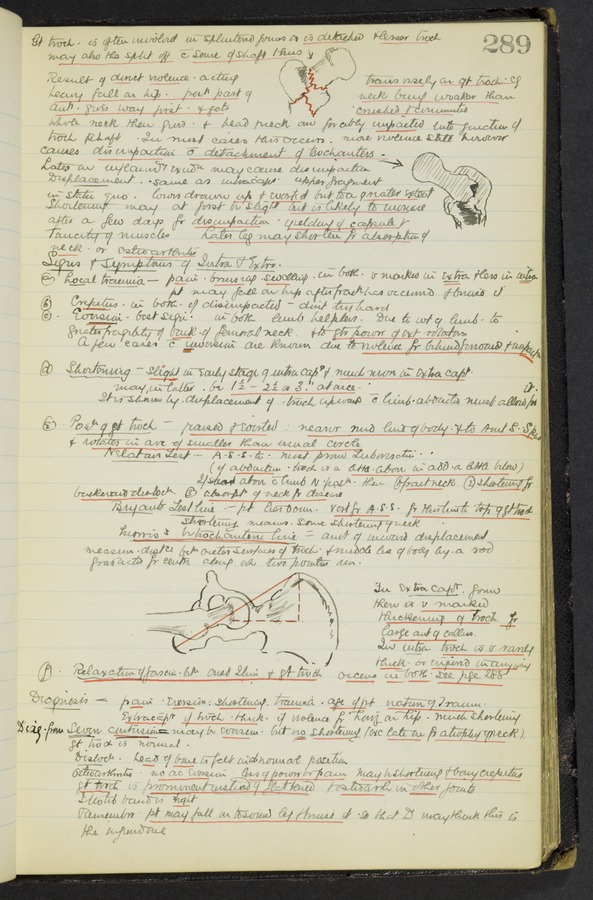 289
Gt troch. is often involved in splintered pieces or is detached & lesser troch
may also be split off c some of shaft thus
Result of direct violence acting transversely on gt troch: eg
heavy fall on hip. post part of neck being weaker than
ant. gives way first & gets crushed & comminuted
whole neck then gives & head neck are forcibly impacted into junction of
troch & shaft. In most cases this occurs. more violence still however
causes disimpaction & detachment of trochanters.
Later on may cause disimpaction
Displacement. same as intracaps upper fragment
in statu quo. lower drawn up & everted but to a greater extent
Shortening may at first be slight but is likely to increase
after a few days fr disimpaction. yielding of capsule &
of muscles Later leg may shorten fr absorption of
neck. or osteoarthritis
Signs & Symptoms of Intra & Extra.
(a) Local trauma — pain. bruising swelling. in both. v marked in extra & less in intra
pt may fall on hip after fract has occurred & bruise it
(b) Crepitus. in both. if disimpacted – dont try hard
(c) Eversion. best sign. in both limb helpless. Due to wt of limb. to
greater fragility of back of femoral neck. & to gtr power of ext rotators
A few cases c inversion are known due to violence fr behind forward &
(d) Shortening — slight in early stage of intracaps & much more in extra caps
may in latter be 1½ – 2½ or 3" at once.
It is shown by displacement of troch upward c limb abducted must allow for
(e) Post of gt troch — raised & everted: nearer mid line of body. & to Ant S. Spine
& rotates in arc of smaller than usual circle
Nelatons Test. — A.S.S. to most prom Tuberosities
(if abduction troch is a little above in add. a little below)
If above c limb N post. then (1) fract neck (2) shortening fr
backward disloc. (3) absorpt of neck fr disease
Bryants Test line — pt lies down. Vert fr A.S.S. fr this line to top of gt troch
shortening means some shortening of neck
Morris's bitrochanteric line = amt of inward displacement
measure distce bet outer surfaces of troch & middle line of body by a rod
graduated fr centre along wh two pointers run.
In Extra Caps form
there is v marked
thickening of troch fr
large amt of callus.
In intra troch is v rarely
thick. or in any way
(f). Relaxation of fascia bet crest Ilium & gt troch occurs in both. See pge 288
Diagnosis — pain. Eversion: shortening, trauma. age of pt nature of trauma.
Extracaps if troch thick. if violence fr hip. much shortening
Diag. from Severe contusion = may be eversion. but no shortening (or late on fr atrophy of neck)
gt troch is normal.
Disloc. Head of bone is felt in abnormal position
Osteoarthritis no ac eversion less of power or pain may be shortening & bony crepitus
gt troch is prominent instead of flattened & osteoarth in other joints
Iliotib band is tight
Remember pt may fall on to sound leg & bruise it. so that D may think this is
the injured one